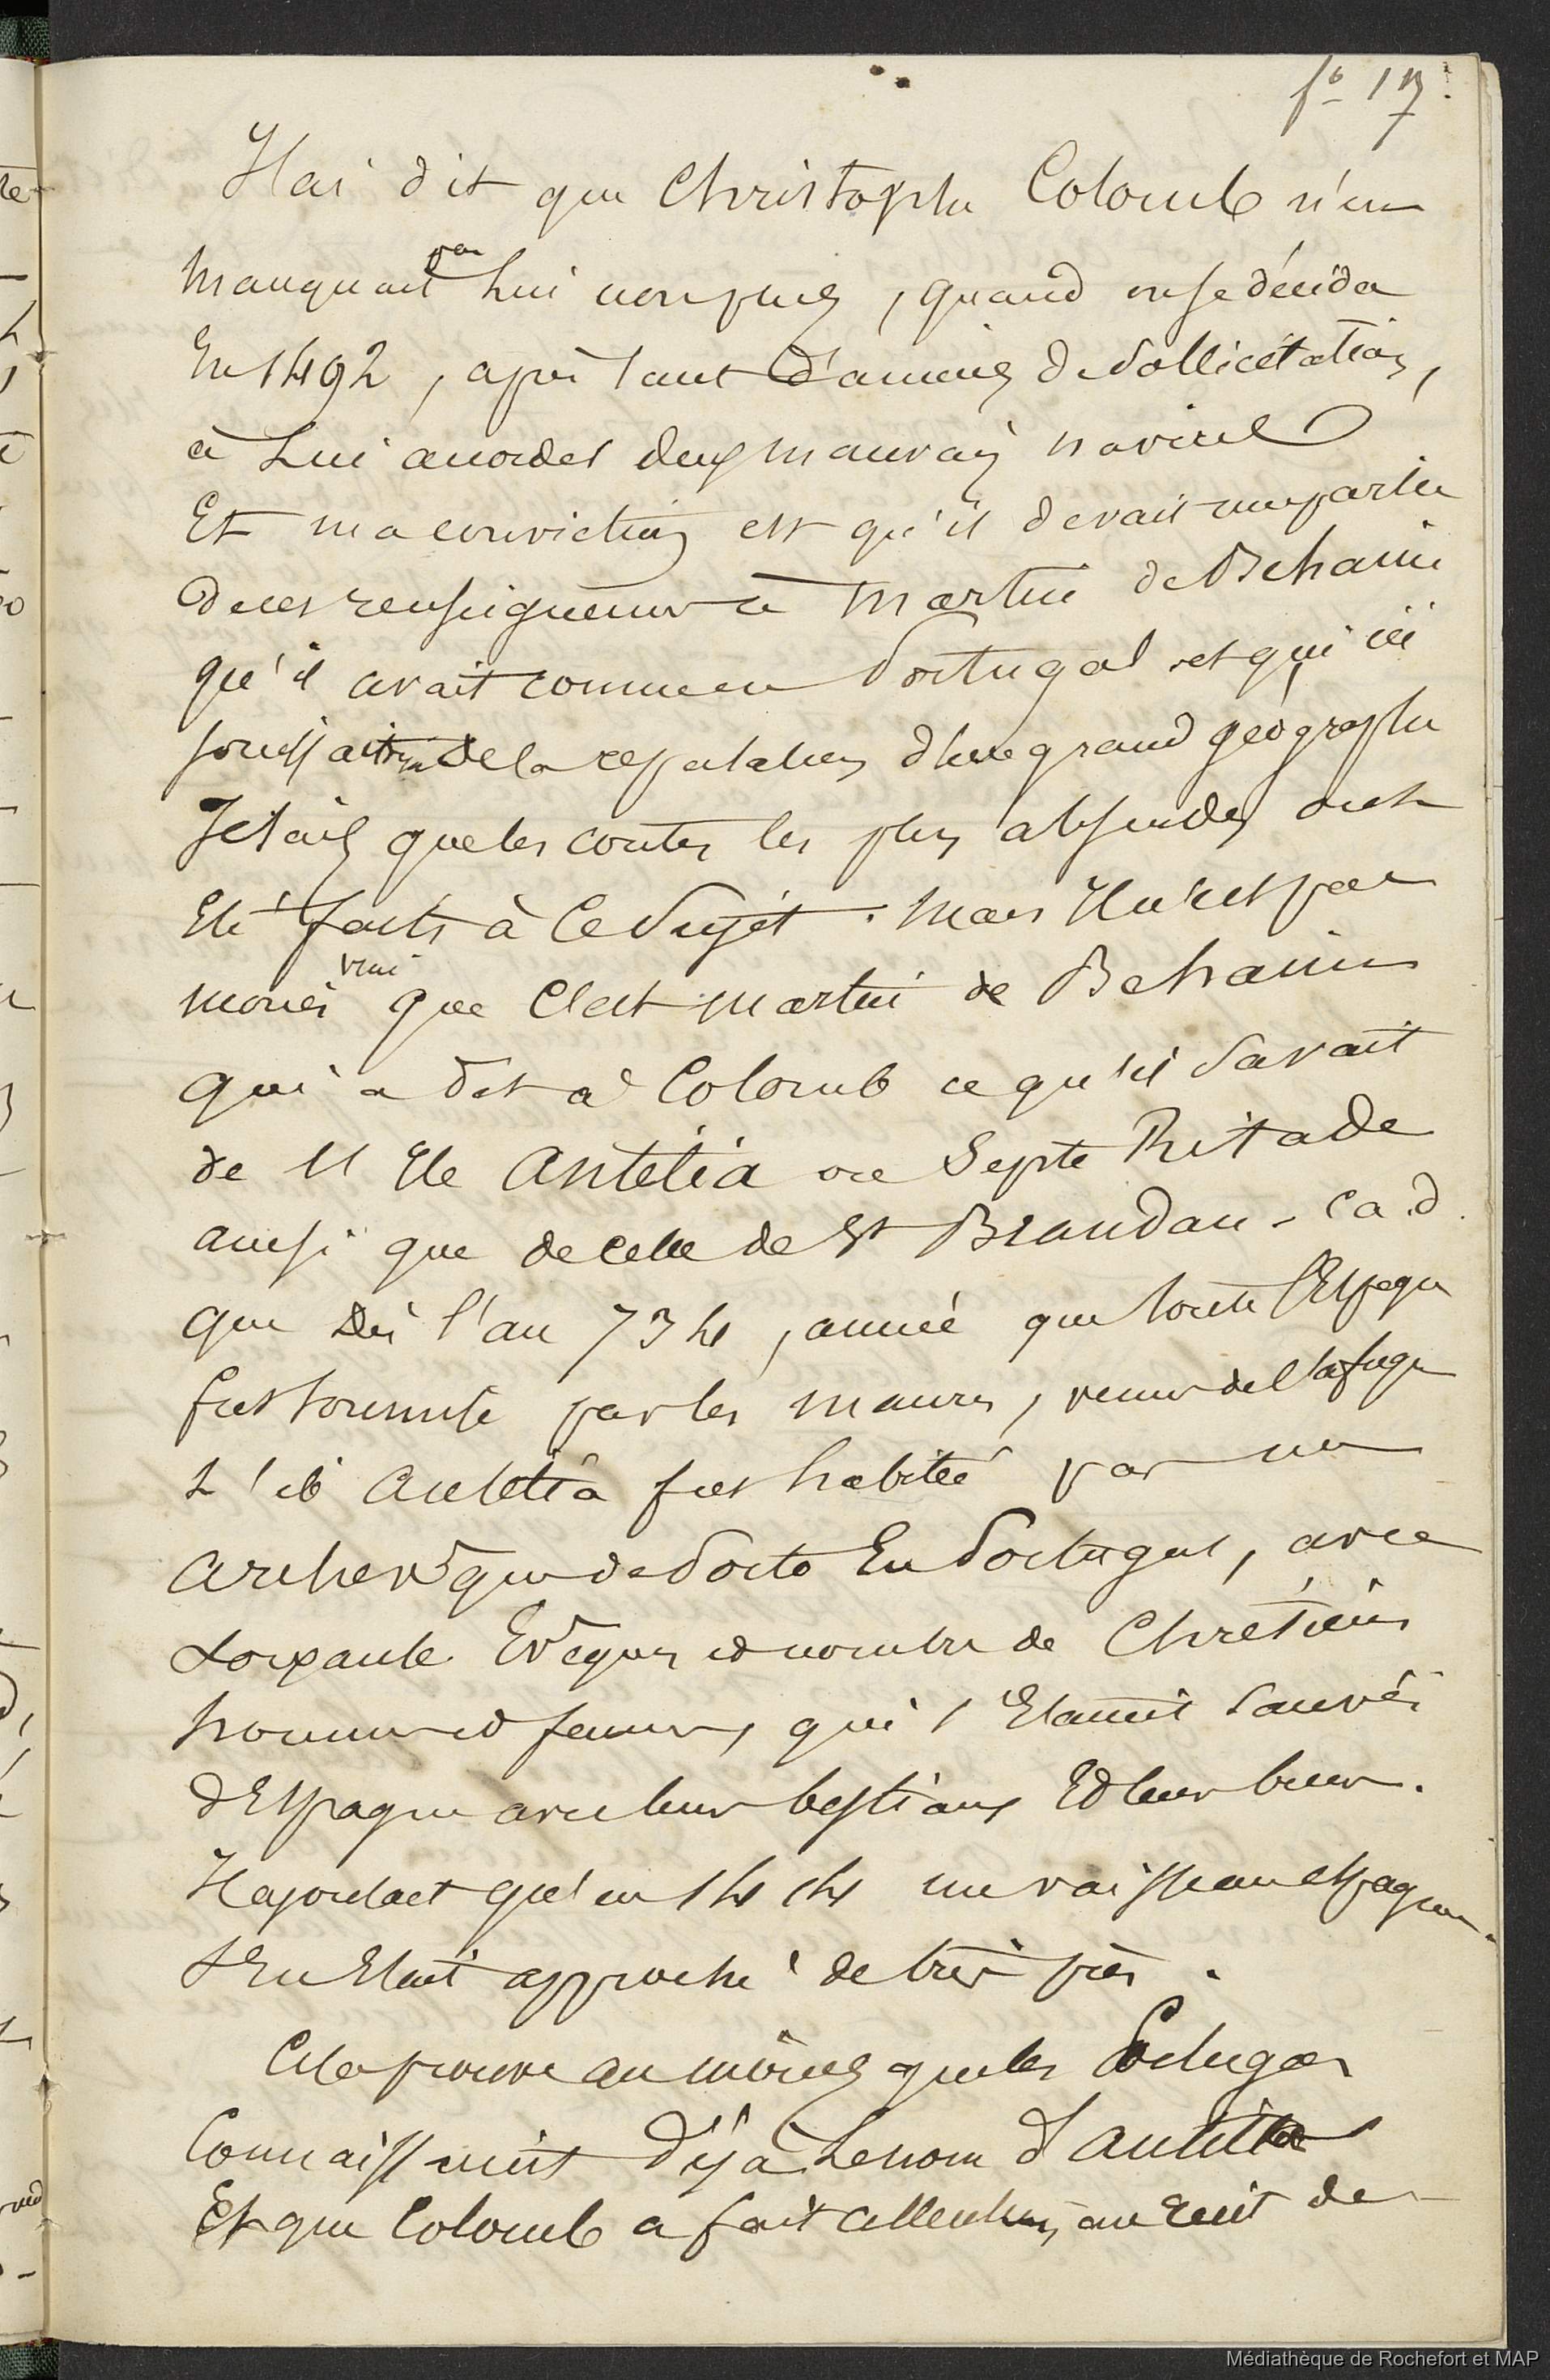 fº 17.
J'ai dit que Christophe Colomb n'en
manquait pas lui non plus, quand on se décida
En 1492, après tant d'années de sollicitations,
à Lui accorder deux mauvais navires
Et ma conviction est qu'il devait une partie
de ces renseignements à Martin de Behaim
qu'il avait connu en Portugal et qui
jouissait de la reputation d'un grand géographe
Je sais que les contes les plus absurdes ont
Eté faits à Ce Sujet. Mais Il n'est pas
moins vrai que C'est Martin de Behaim
qui a dit à Colomb ce qu'il Savait
de l'Ile Antetia ou Septe Ritade
ainsi que de celle de St Brandan - c a d.
que Dès l'an 734, année que toute l'Espagne
fut soumise par les maures, venus de l'afrique
L'ile Antetia fut habitée par un
archevêque de Porto En Portugal, avec
six autres Evêques et nombre de Chrétiens
hommes et femmes, qui s'Etaient Sauvés
d'Espagne avec leurs bestiaux Et leurs biens.
Il ajoutait qu'en 1414 un vaisseau espagnol
s'En Etait approché de très près.
Cela prouve au moins que les Portugais
Connaissaient Déjà Le nom d'Antilia
Et que Colomb a fait allusion au récit de
Médiathèque de Rochefort et MAP